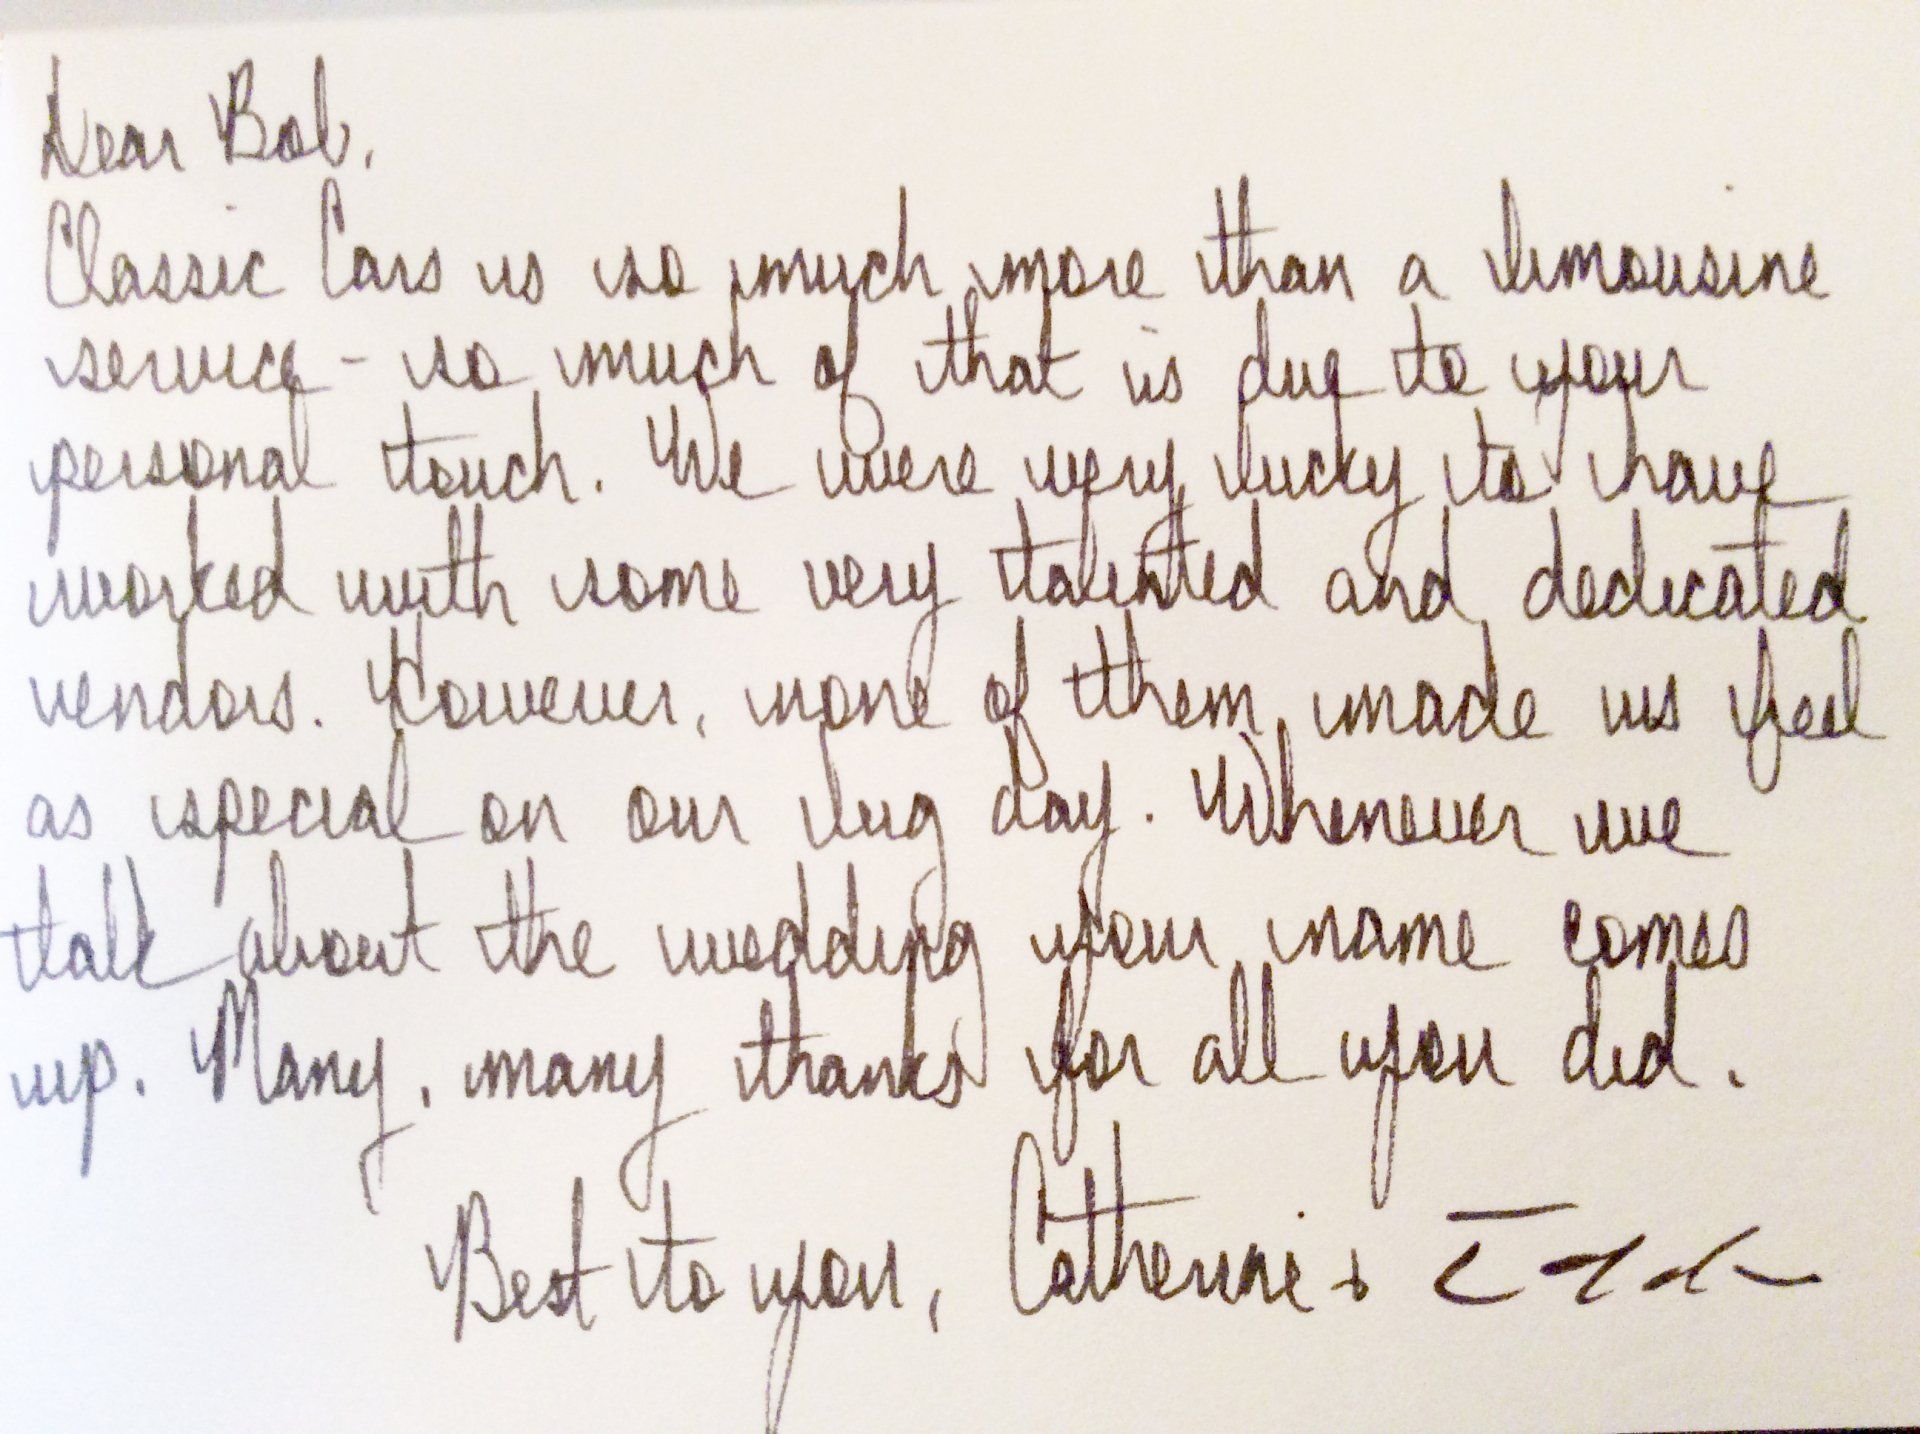 Dear Bob,
Classic Cars is so much more than a limousine
service - so much of that is due to your
personal touch. We were very lucky to have
worked with some very talented and dedicated
vendors. However, none of them made us feel
as special on our big day. Whenever we
talk about the wedding your name comes
up. Many, many thanks for all you did.
Best to you, Catherine +